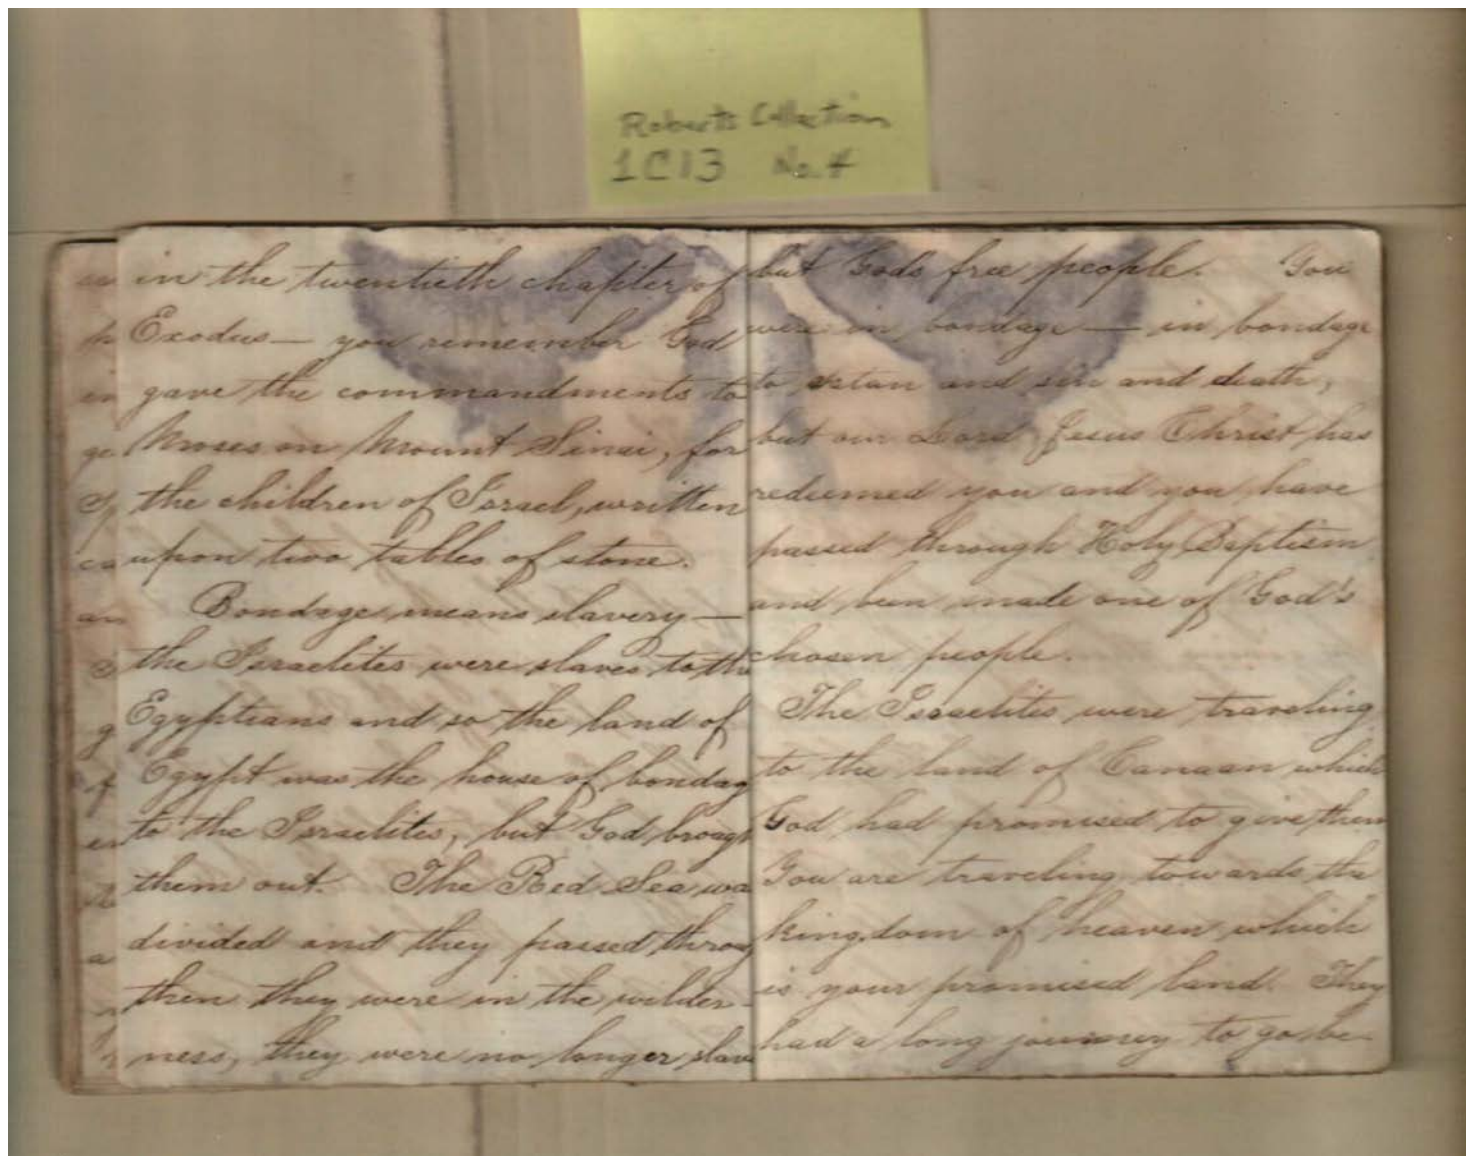 Roberts Collection
1C13 No. 4
in the twentieth chapter of
Exodus — you remember God
gave the commandments to
Moses on Mount Sinai, for
the children of Israel, written
upon two tables of stone.
Bondage means slavery —
the Israelites were slaves to the
Egyptians and so the land of
Egypt was the house of bondag
to the Israelites, but God brough
them out. The Red Sea wa
divided and they passed throug
then they were in the wilder-
ness, they were no longer slave
but Gods free people. You
were in bondage — in bondage
to satan and sin and death,
but our Lord Jesus Christ has
redeemed you and you have
passed through Holy Baptism
and been made one of God's
chosen people.
The Israelites were traveling
to the land of Canaan which
God had promised to give them
You are traveling towards the
kingdom of heaven which
is your promised land. They
had a long journey to go be-